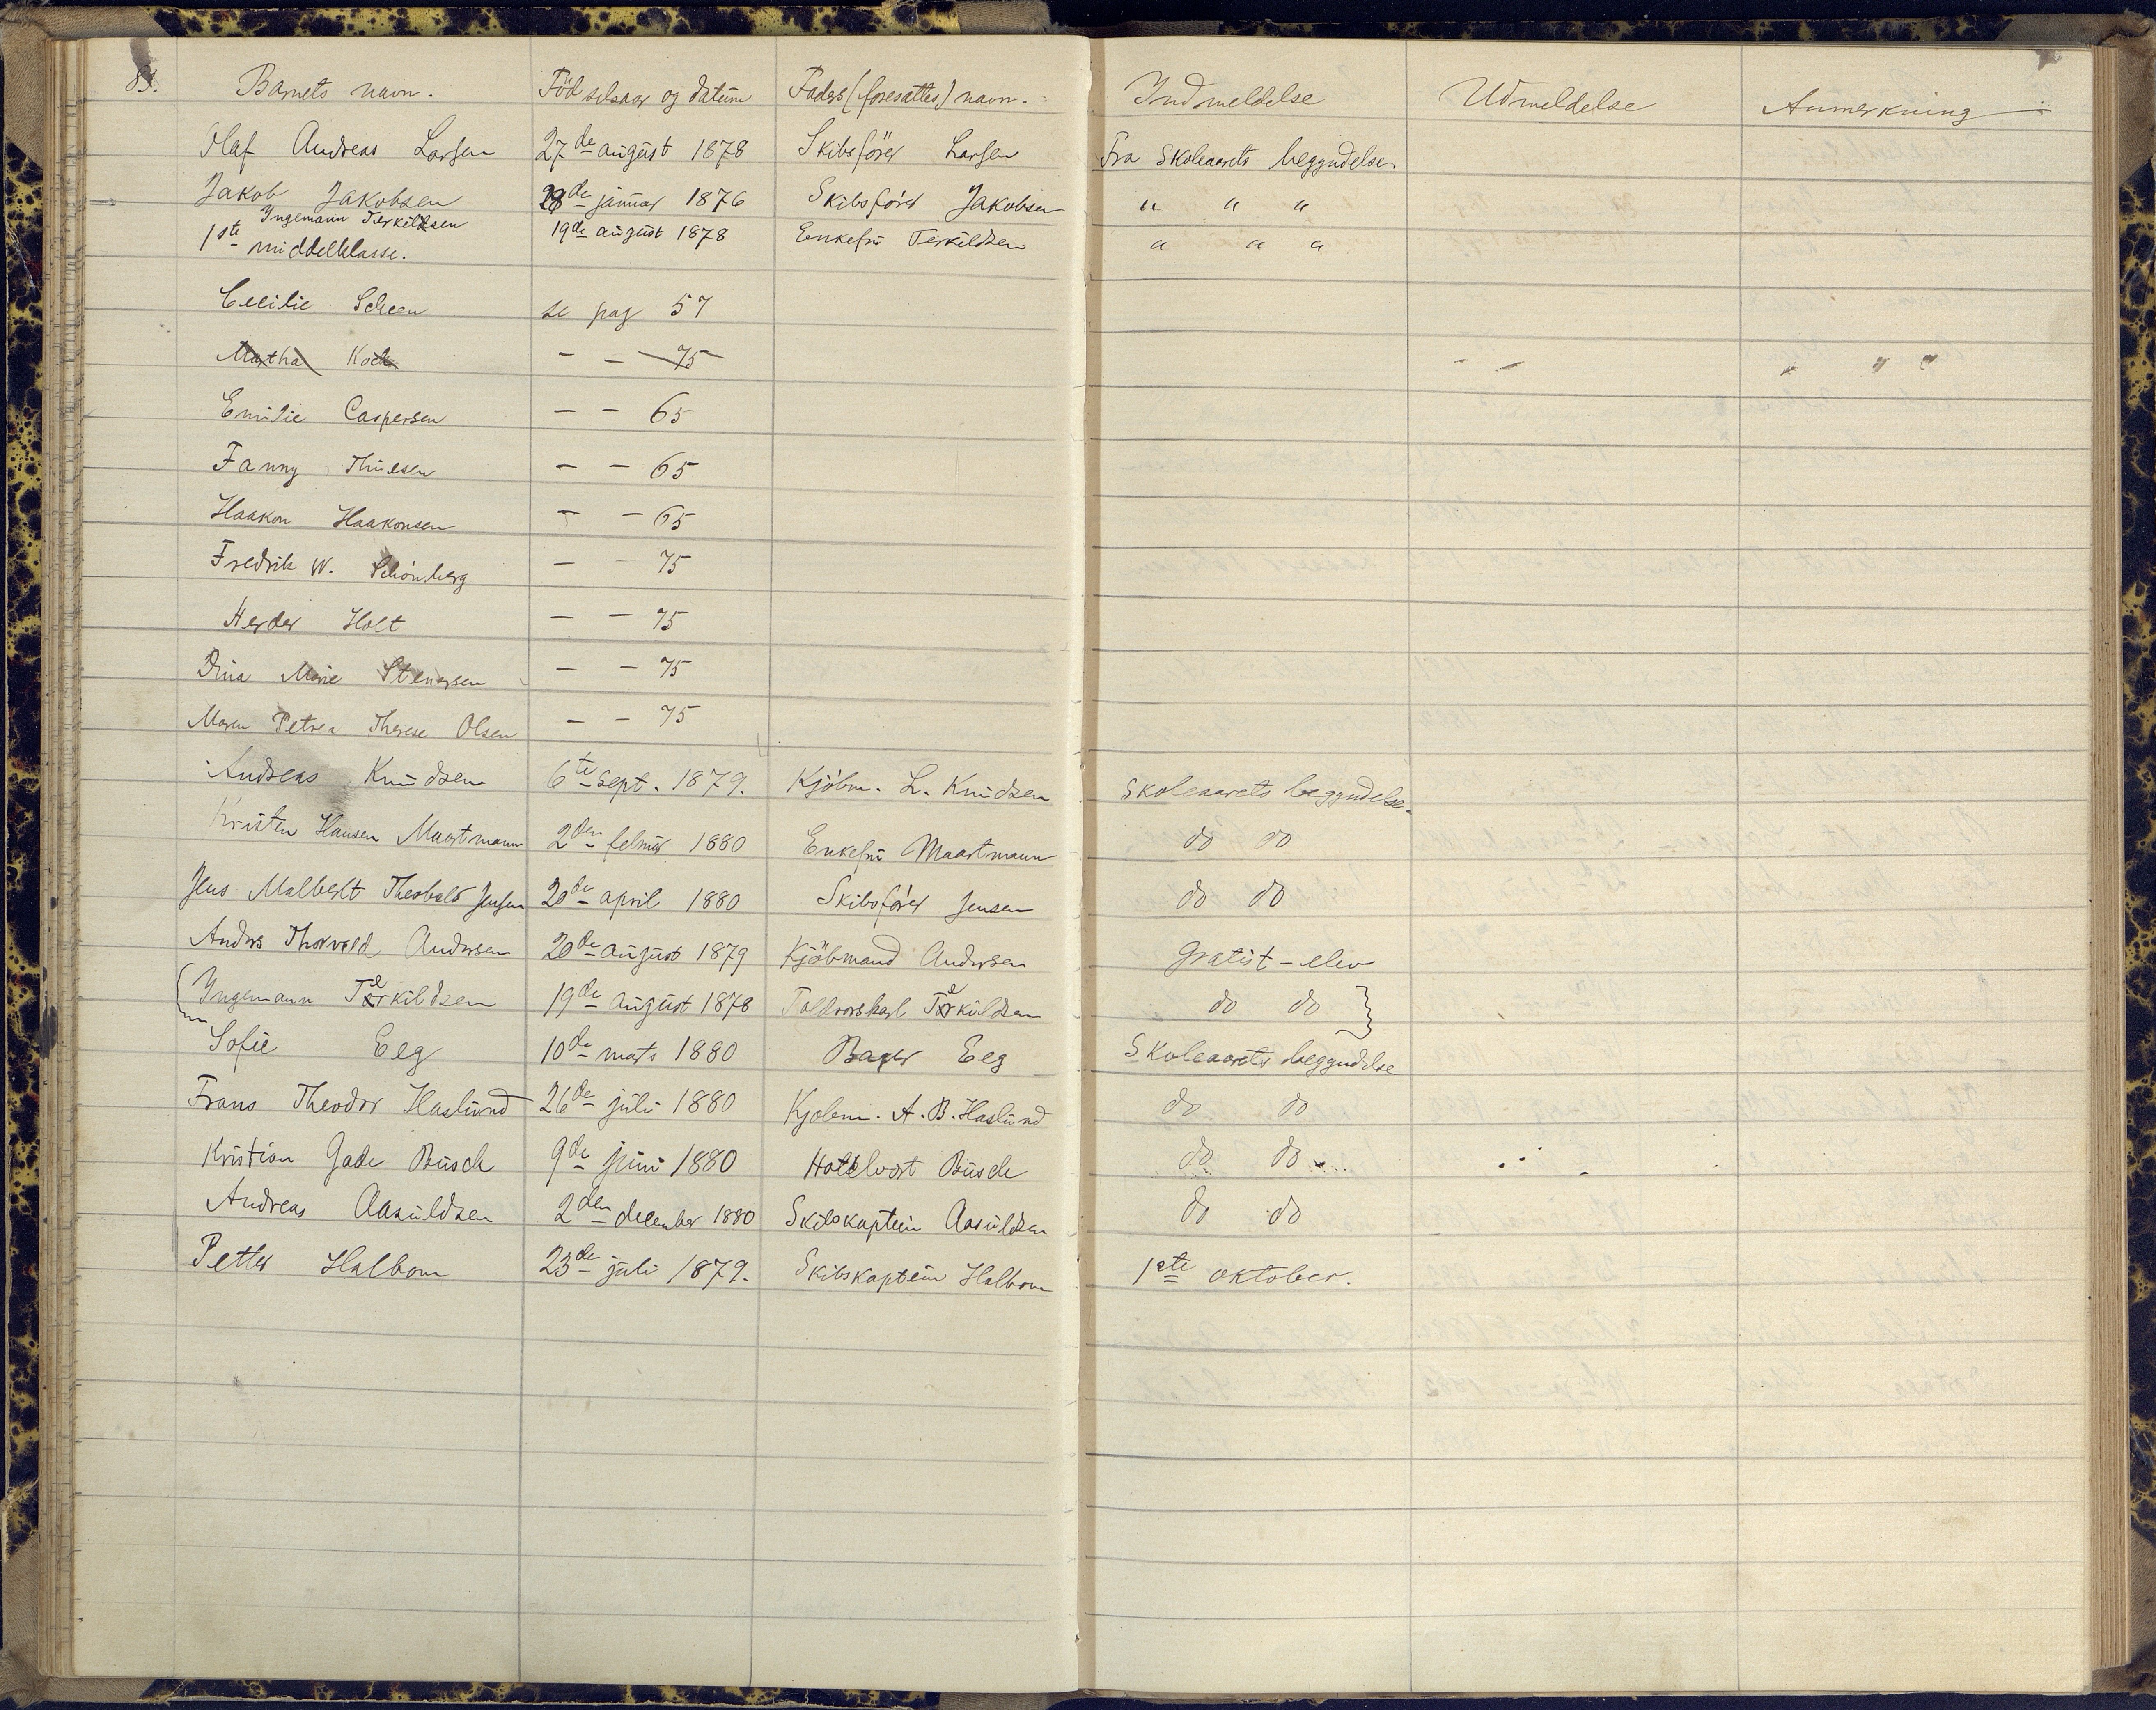 81. Barnets navn. Födselsaar og datum Faders (foresattes) navn. Indmeldelse Udmeldelse Anmerkning
Olaf Andreas Larsen 27de august 1878 Skibsförer Larsen Fra Skoleaarets begyndelse.
Jakob Jakobsen 28de januar 1876 Skibsförer Jakobsen " " "
Ingemann Terkildsen 19de august 1878 Enkefru Terkildsen " " "
1ste middelklasse.
Cecilie Scheen se pag 57
Martha Koch - - 75
Emilie Caspersen - - 65
Fanny Thiesen - - 65
Haakon Haakonsen - - 65
Fredrik W. Schönberg - - 75
Herder Holt - - 75
Dina Marie Stenersen - - 75
Maren Petrea Therese Olsen - - 75
Andreas Knudsen 6te sept. 1879. Kjöbm. L. Knudsen Skoleaarets begyndelse.
Kristen Hansen Maartmann 2den februar 1880 Enkefru Maartmann do do
Jens Malbert Theobald Jensen 20de april 1880 Skibsförer Jensen do do
Anders Thorvald Andersen 20de august 1879 Kjöbmand Andersen gratist-elev
Ingemann Terkildsen 19de august 1878 Toldrorskarl Terkildsen do do
Sofie Eeg 10de mats 1880 Bager Eeg Skoleaarets begyndelse
Frans Theodor Haslund 26de juli 1880 Kjobm. A. B. Haslund do do
Kristian Gade Busch 9de juni 1880 Hotelvert Busch do do
Andreas Aasuldsen 2den december 1880 Skibskaptein Aasuldsen do do
Petter Halbom 23de juli 1879. Skibskaptein Halbom 1ste oktober.